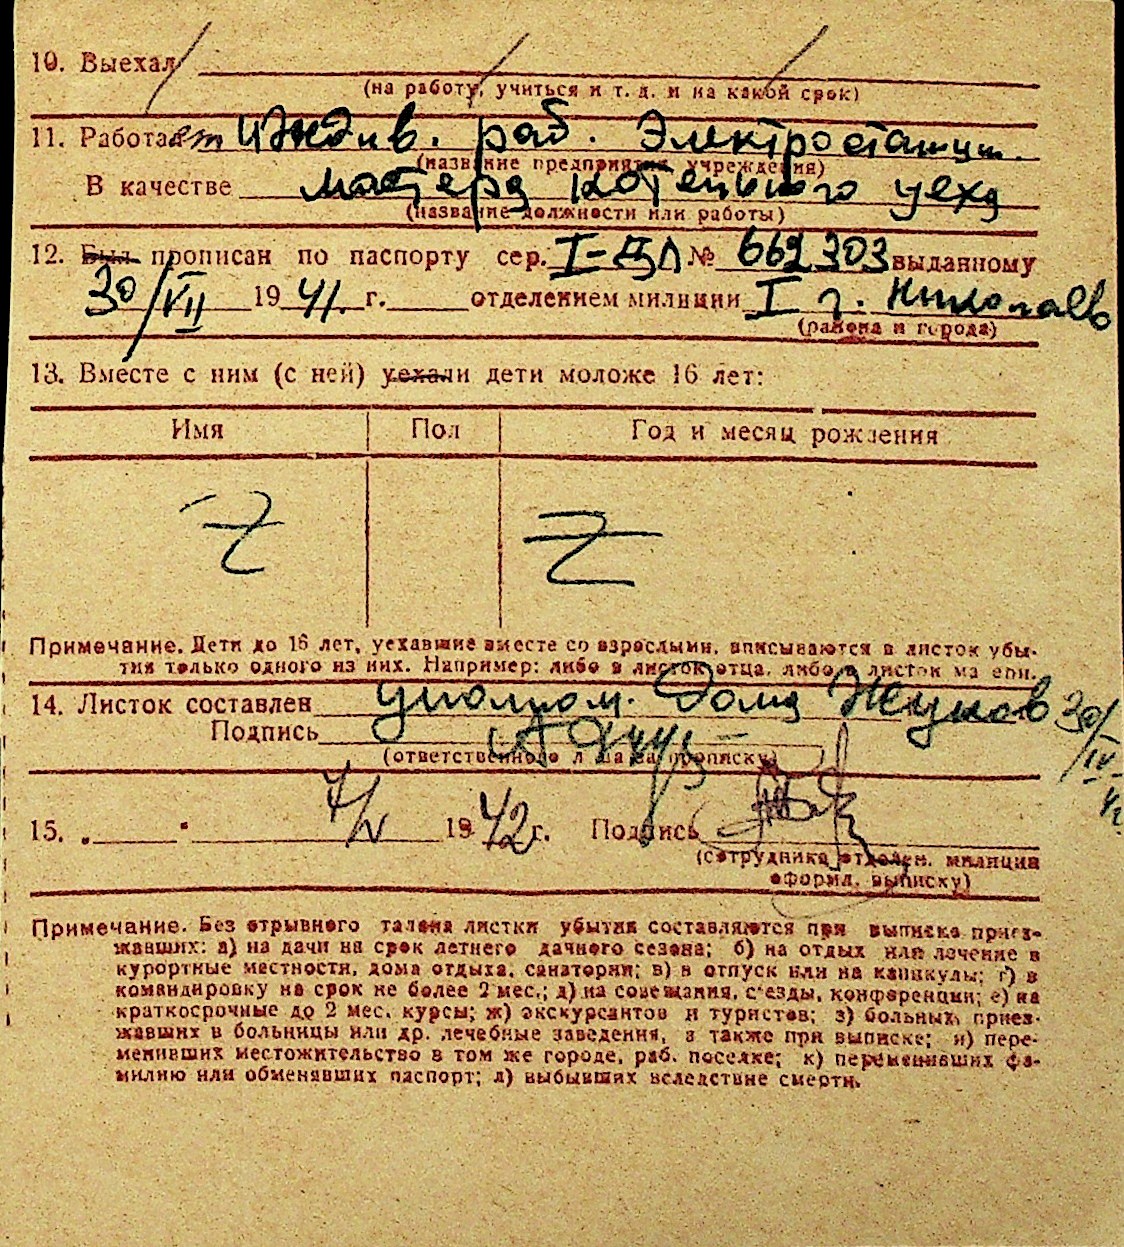 10. Выехал
(на работу, учиться и т. д. и на какой срок)
11. Работает Иждив. раб. Электростанци.
(название предприятия, учреждения)
В качестве мастера котельного цеха
(название должности или работы)
12. Был прописан по паспорту сер. I-ДЛ № 662303 выданному
30/VII 1941. г. отделением милиции I г. Николаев
(района и города)
13. Вместе с ним (с ней) уехали дети моложе 16 лет:
Имя Пол Год и месяц рождения
Z Z
Примечание. Дети до 16 лет, уехавшие вместе со взрослыми, вписываются в листок убы-
тия только одного из них. Например: либо в листок отца, либо в листок матери.
14. Листок составлен дома 30/IV
Подпись
(ответственного лица за прописку)
15. 7/V 1942 г. Подпись
(сотрудника отделен. милиции
оформл. выписку)
Примечание. Без отрывного талона листки убытия составляются при выписке приез-
жавших: а) на дачи на срок летнего дачного сезона; б) на отдых или лечение в
курортные местности, дома отдыха, санатории; в) в отпуск или на каникулы; г) в
командировку на срок не более 2 мес.; д) на совещания, с'езды, конференции; е) на
краткосрочные до 2 мес. курсы; ж) экскурсантов и туристов; з) больных, приез-
жавших в больницы или др. лечебные заведения, а также при выписке; и) пере-
менивших местожительство в том же городе, раб. поселке; к) переменивших фа-
милию или обменявших паспорт; л) выбывших вследствие смерти.